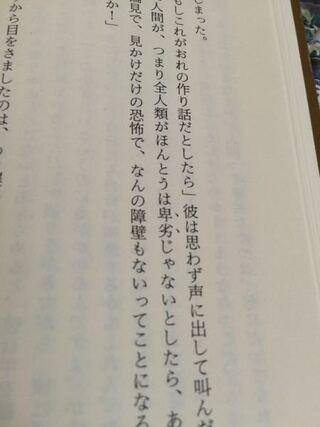 しまった。
もしこれがおれの作り話だとしたら」彼は思わず声に出して叫んだ
人間が、つまり全人類がほんとうは卑劣じゃないとしたら、あ
見で、見かけだけの恐怖で、なんの障壁もないってことになる
か！」
から目をさましたのは、